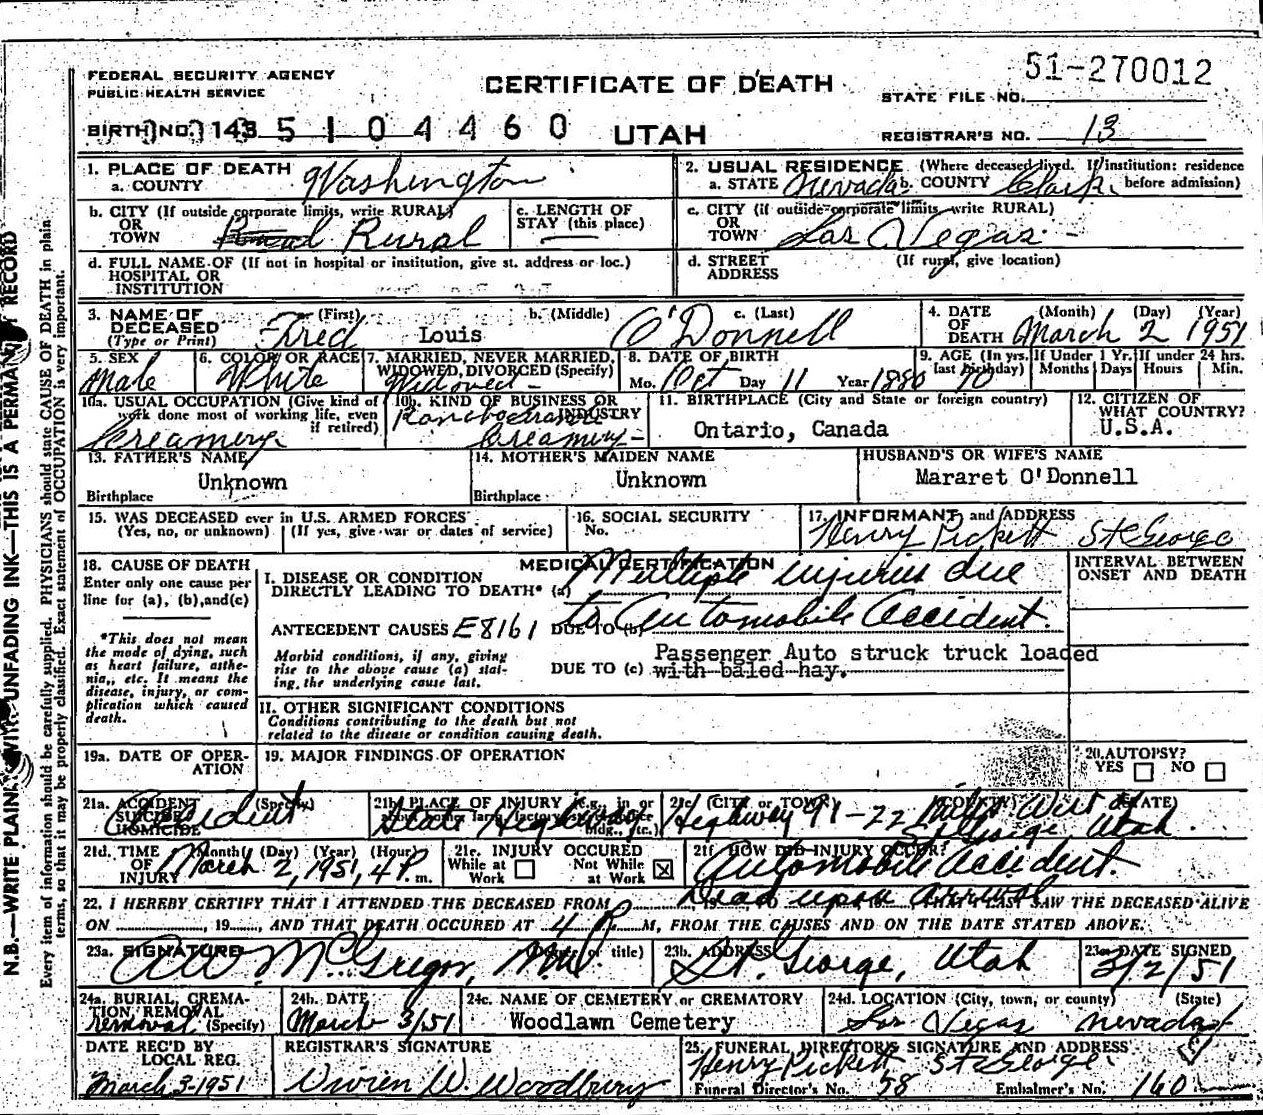 FEDERAL SECURITY AGENCY
PUBLIC HEALTH SERVICE
CERTIFICATE OF DEATH
51-270012
STATE FILE NO.
BIRTH NO. 143 5 1 0 4 4 6 0
UTAH
REGISTRAR'S NO. 13
1. PLACE OF DEATH
a. COUNTY Washington
2. USUAL RESIDENCE (Where deceased lived. If institution: residence before admission)
a. STATE Nevada b. COUNTY Clark
b. CITY (If outside corporate limits, write RURAL)
OR
TOWN Rural
c. LENGTH OF
STAY (this place)
c. CITY (if outside corporate limits, write RURAL)
OR
TOWN Las Vegas
d. FULL NAME OF (If not in hospital or institution, give st. address or loc.)
HOSPITAL OR
INSTITUTION
d. STREET
ADDRESS
(If rural, give location)
3. NAME OF
DECEASED
(Type or Print)
(First) b. (Middle) c. (Last)
Fred Louis O'Donnell
4. DATE
OF
DEATH
(Month) (Day) (Year)
March 2 1951
5. SEX
Male
6. COLOR OR RACE
White
7. MARRIED, NEVER MARRIED,
WIDOWED, DIVORCED (Specify)
Widowed
8. DATE OF BIRTH
Mo. Oct Day 11 Year 1880
9. AGE (In yrs. last birthday) 70
If Under 1 Yr. Months Days
If under 24 hrs. Hours Min.
10a. USUAL OCCUPATION (Give kind of
work done most of working life, even
if retired)
Creamery
10b. KIND OF BUSINESS OR
INDUSTRY
Creamery
11. BIRTHPLACE (City and State or foreign country)
Ontario, Canada
12. CITIZEN OF
WHAT COUNTRY?
U.S.A.
13. FATHER'S NAME
Unknown
Birthplace
14. MOTHER'S MAIDEN NAME
Unknown
Birthplace
HUSBAND'S OR WIFE'S NAME
Mararet O'Donnell
15. WAS DECEASED ever in U.S. ARMED FORCES
(Yes, no, or unknown) (If yes, give war or dates of service)
16. SOCIAL SECURITY
No.
17. INFORMANT and ADDRESS
Henry Pickett St George
18. CAUSE OF DEATH
Enter only one cause per
line for (a), (b), and (c)
*This does not mean
the mode of dying, such
as heart failure, asthe-
nia, etc. It means the
disease, injury, or com-
plication which caused
death.
MEDICAL CERTIFICATION
I. DISEASE OR CONDITION
DIRECTLY LEADING TO DEATH* (a) Multiple injuries due
to Automobile Accident.
ANTECEDENT CAUSES E8161 DUE TO (b)
Morbid conditions, if any, giving
rise to the above cause (a) stat-
ing the underlying cause last.
DUE TO (c) Passenger Auto struck truck loaded
with baled hay.
II. OTHER SIGNIFICANT CONDITIONS
Conditions contributing to the death but not
related to the disease or condition causing death.
INTERVAL BETWEEN
ONSET AND DEATH
19a. DATE OF OPER-
ATION
19. MAJOR FINDINGS OF OPERATION
20. AUTOPSY?
YES NO
21a. ACCIDENT (Specify)
SUICIDE
HOMICIDE
Accident
21b. PLACE OF INJURY (e.g., in or
State Highway
21c. (CITY or TOWN) (COUNTY) (STATE)
Highway 91 - 22 Miles West of
St George, Utah
21d. TIME (Month) (Day) (Year) (Hour)
OF
INJURY March 2, 1951, 4 P. m.
21e. INJURY OCCURED
While at Work Not While at Work
21f. HOW DID INJURY OCCUR?
Automobile Accident.
Dead upon arrival
22. I HEREBY CERTIFY THAT I ATTENDED THE DECEASED FROM THAT I LAST SAW THE DECEASED ALIVE
ON , 19 , AND THAT DEATH OCCURED AT 4 P M, FROM THE CAUSES AND ON THE DATE STATED ABOVE.
23a. SIGNATURE (Degree or title)
A W McGregor, M.D.
23b. ADDRESS
St. George, Utah
23c. DATE SIGNED
3/2/51
24a. BURIAL, CREMA-
TION, REMOVAL
(Specify)
Removal
24b. DATE
March 3/51
24c. NAME OF CEMETERY or CREMATORY
Woodlawn Cemetery
24d. LOCATION (City, town, or county) (State)
Las Vegas Nevada
DATE REC'D BY
LOCAL REG.
March 3-1951
REGISTRAR'S SIGNATURE
Vivien W. Woodbury
25. FUNERAL DIRECTOR'S SIGNATURE AND ADDRESS
Henry Pickett St George
Funeral Director's No. 58 Embalmer's No. 160
N.B.—WRITE PLAINLY WITH UNFADING INK—THIS IS A PERMANENT RECORD
Every item of information should be carefully supplied. PHYSICIANS should state CAUSE OF DEATH in plain
terms, so that it may be properly classified. Exact statement of OCCUPATION is very important.